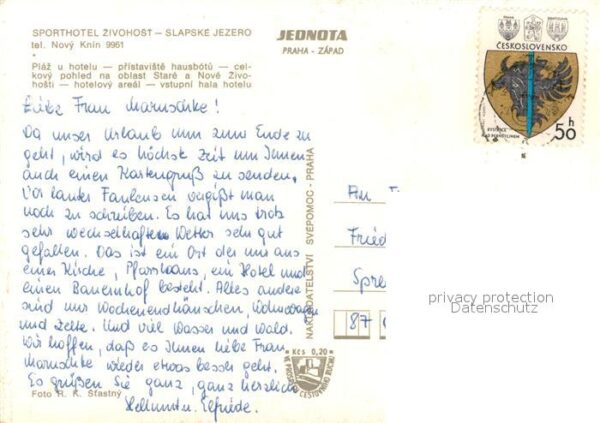 SPORTHOTEL ŽIVOHOŠŤ — SLAPSKÉ JEZERO
tel. Nový Knín 9961
JEDNOTA
PRAHA - ZÁPAD
Pláž u hotelu — přístaviště hausbótů — cel-
kový pohled na oblast Staré a Nové Živo-
hošti — hotelový areál — vstupní hala hotelu
Liebe Frau Maruschke!
Da unser Urlaub nun zum Ende zu
geht, wird es höchste Zeit um Ihnen
auch einen Kartengruß zu senden.
Vor lauter Faulenzen vergißt man
noch zu schreiben. Es hat uns trotz
sehr wechselhaften Wetter sehr gut
gefallen. Das ist ein Ort der nur aus
einer Kirche, Pfarrhaus, ein Hotel und
einen Bauernhof besteht. Alles andere
sind nur Wochenendhäuschen, Wohnwagen
und Zelte. Und viel Wasser und Wald.
Wir hoffen, daß es Ihnen liebe Frau
Maruschke wieder etwas besser geht.
Es grüßen Sie ganz, ganz herzlich
Hellmut u. Elfriede.
Foto R. K. Šťastný
NAKLADATELSTVÍ SVÉPOMOC - PRAHA
Kčs 0,20
ČESKOSLOVENSKO
BYSTŘICE
NAD PERNŠTEJNEM
50 h
An
Fried
Spre
87
privacy protection
Datenschutz